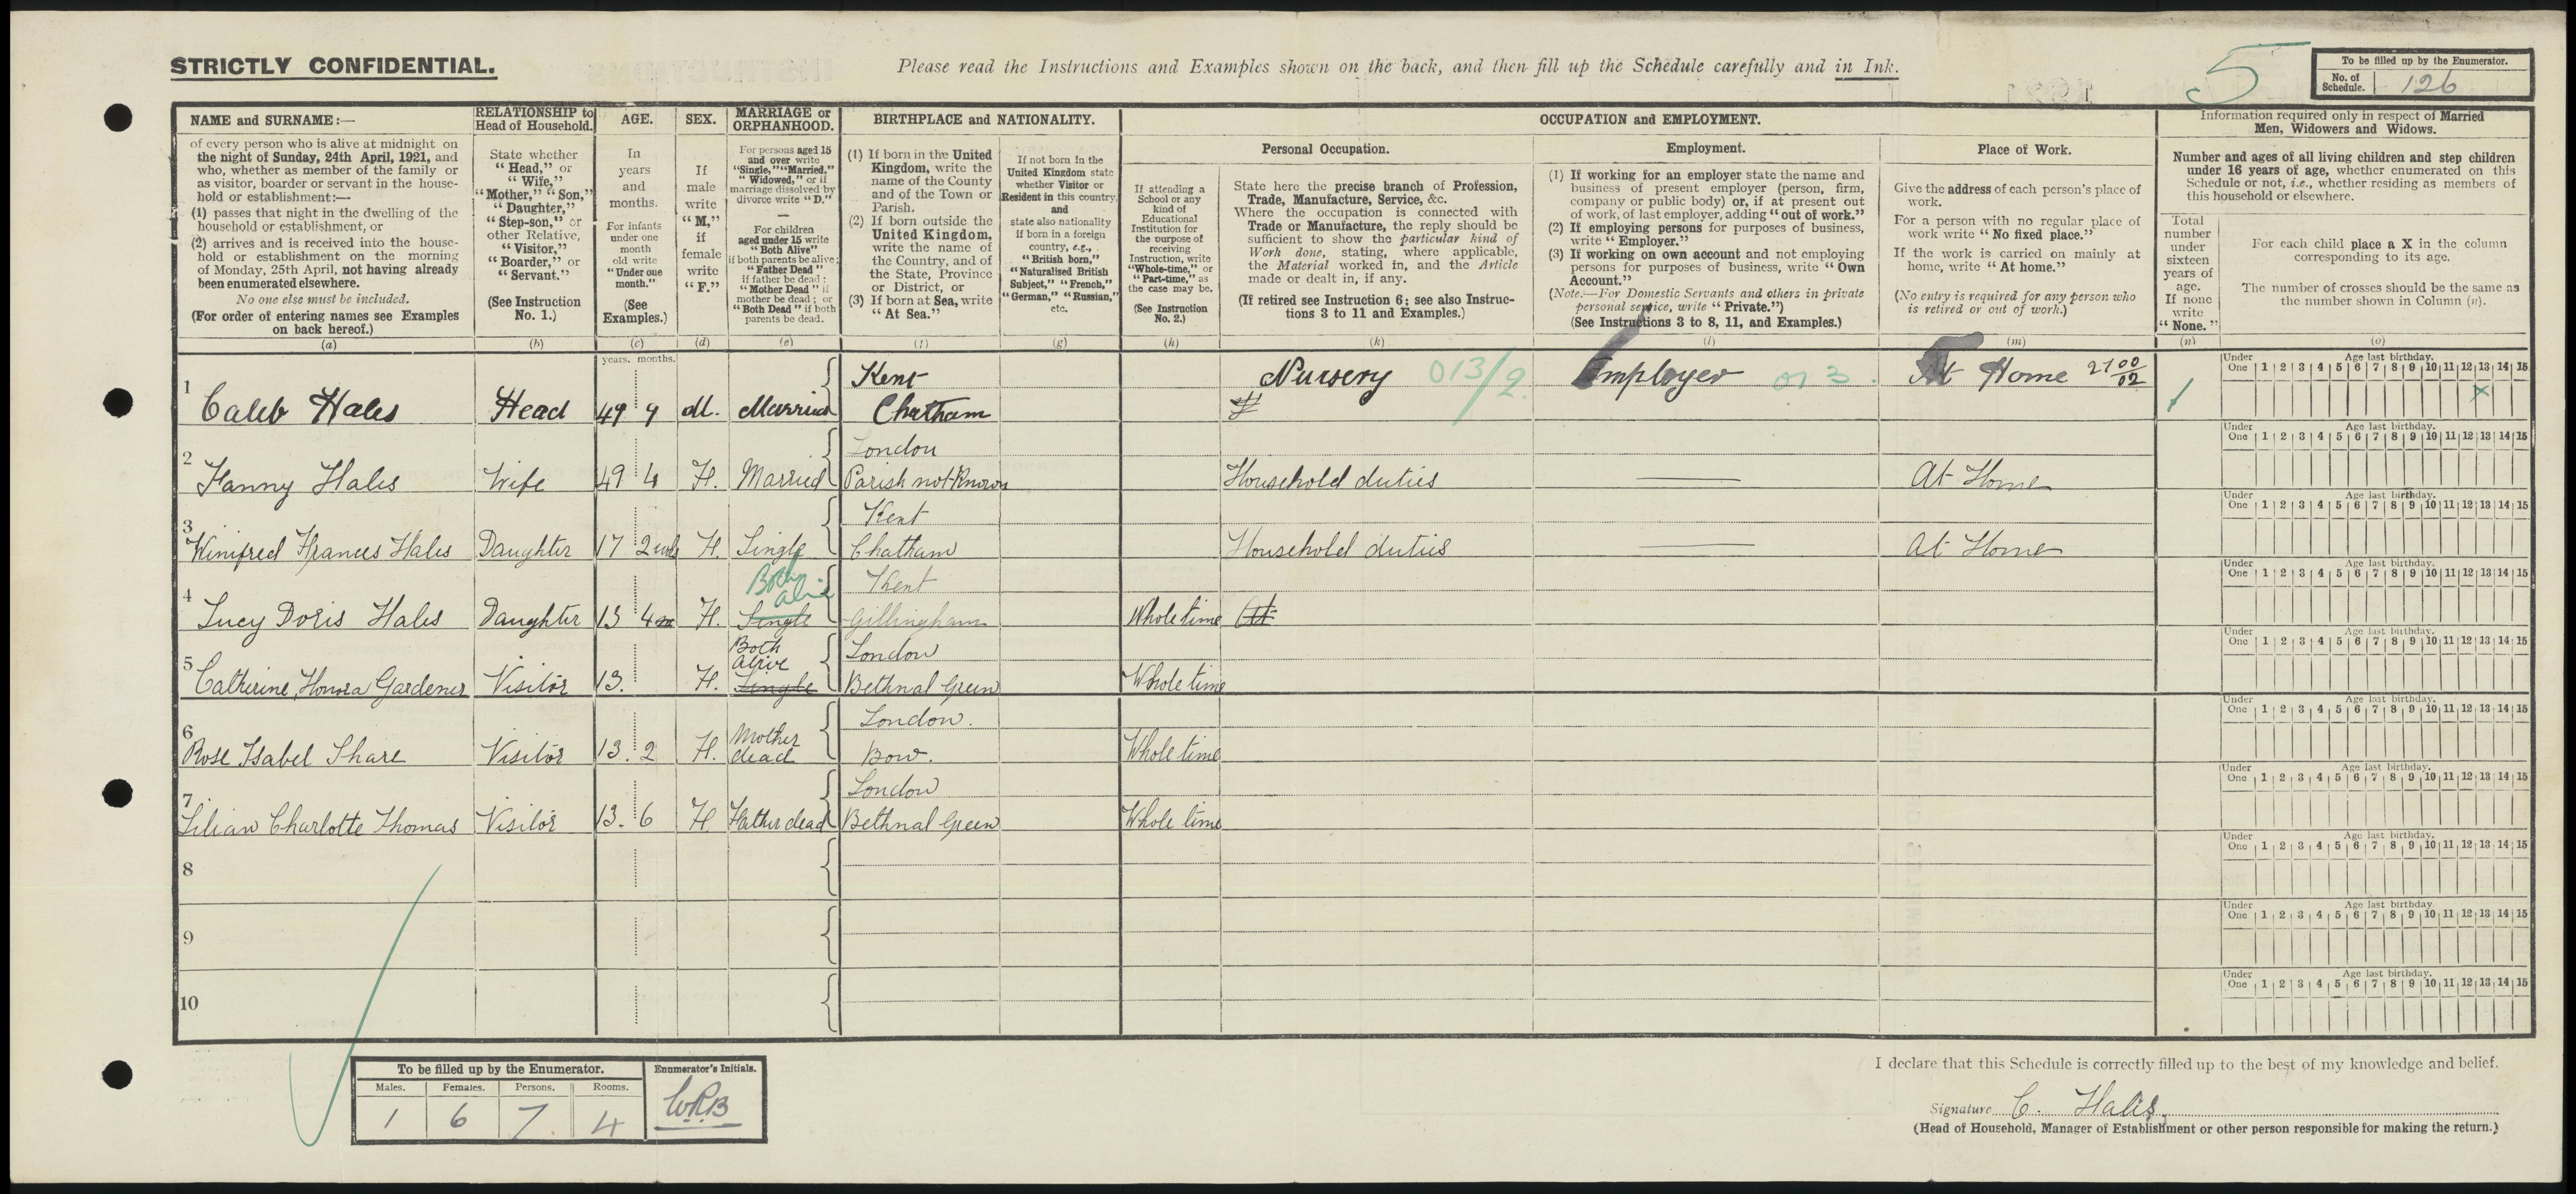 STRICTLY CONFIDENTIAL.
Please read the Instructions and Examples shown on the back, and then fill up the Schedule carefully and in Ink.
5
To be filled up by the Enumerator.
No. of Schedule. 126
NAME and SURNAME:—
of every person who is alive at midnight on
the night of Sunday, 24th April, 1921, and
who, whether as member of the family or
as visitor, boarder or servant in the house-
hold or establishment:—
(1) passes that night in the dwelling of the
household or establishment, or
(2) arrives and is received into the house-
hold or establishment on the morning
of Monday, 25th April, not having already
been enumerated elsewhere.
No one else must be included.
(For order of entering names see Examples
on back hereof.)
(a)
RELATIONSHIP to
Head of Household.
State whether
"Head," or
"Wife,"
"Mother," "Son,"
"Daughter,"
"Step-son," or
other Relative,
"Visitor,"
"Boarder," or
"Servant."
(See Instruction
No. 1.)
(b)
AGE.
In
years
and
months.
For infants
under one
month
old write
"Under one
month."
(See
Examples.)
(c)
SEX.
If
male
write
"M,"
if
female
write
"F."
(d)
MARRIAGE or
ORPHANHOOD.
For persons aged 15
and over write
"Single," "Married,"
"Widowed," or if
marriage dissolved by
divorce write "D."
—
For children
aged under 15 write
"Both Alive"
if both parents be alive;
"Father Dead"
if father be dead;
"Mother Dead" if
mother be dead; or
"Both Dead" if both
parents be dead.
(e)
BIRTHPLACE and NATIONALITY.
(1) If born in the United
Kingdom, write the
name of the County
and of the Town or
Parish.
(2) If born outside the
United Kingdom,
write the name of
the Country, and of
the State, Province
or District, or
(3) If born at Sea, write
"At Sea."
(f)
If not born in the
United Kingdom state
whether Visitor or
Resident in this country,
and
state also nationality
if born in a foreign
country, e.g.,
"British born,"
"Naturalised British
Subject," "French,"
"German," "Russian,"
etc.
(g)
OCCUPATION and EMPLOYMENT.
If attending a
School or any
kind of
Educational
Institution for
the purpose of
receiving
Instruction, write
"Whole-time," or
"Part-time," as
the case may be.
(See Instruction
No. 2.)
(h)
Personal Occupation.
State here the precise branch of Profession,
Trade, Manufacture, Service, &c.
Where the occupation is connected with
Trade or Manufacture, the reply should be
sufficient to show the particular kind of
Work done, stating, where applicable,
the Material worked in, and the Article
made or dealt in, if any.
(If retired see Instruction 6; see also Instruc-
tions 3 to 11 and Examples.)
(k)
Employment.
(1) If working for an employer state the name and
business of present employer (person, firm,
company or public body) or, if at present out
of work, of last employer, adding "out of work."
(2) If employing persons for purposes of business,
write "Employer."
(3) If working on own account and not employing
persons for purposes of business, write "Own
Account."
(Note.—For Domestic Servants and others in private
personal service, write "Private.")
(See Instructions 3 to 8, 11, and Examples.)
(l)
Place of Work.
Give the address of each person's place of
work.
For a person with no regular place of
work write "No fixed place."
If the work is carried on mainly at
home, write "At home."
(No entry is required for any person who
is retired or out of work.)
(m)
Information required only in respect of Married
Men, Widowers and Widows.
Number and ages of all living children and step children
under 16 years of age, whether enumerated on this
Schedule or not, i.e., whether residing as members of
this household or elsewhere.
Total
number
under
sixteen
years of
age.
If none
write
"None."
(n)
For each child place a X in the column
corresponding to its age.
The number of crosses should be the same as
the number shown in Column (n).
(o)
years. months.
1 Caleb Hales Head 49 9 M. Married Kent Chatham Nursery 013/2 Employer 013. At Home 2700/02 1 x
Under One Age last birthday. 1 2 3 4 5 6 7 8 9 10 11 12 13 14 15
2 Fanny Hales Wife 49 4 F. Married London Parish not Known Household duties — At Home
Under One Age last birthday. 1 2 3 4 5 6 7 8 9 10 11 12 13 14 15
3 Winifred Frances Hales Daughter 17 2 F. Single Kent Chatham Household duties — At Home
Under One Age last birthday. 1 2 3 4 5 6 7 8 9 10 11 12 13 14 15
4 Lucy Doris Hales Daughter 13 4 F. Single Both alive Kent Gillingham Whole time At
Under One Age last birthday. 1 2 3 4 5 6 7 8 9 10 11 12 13 14 15
5 Catherine Honora Gardener Visitor 13. F. Both alive Single London Bethnal Green Whole time
Under One Age last birthday. 1 2 3 4 5 6 7 8 9 10 11 12 13 14 15
6 Rose Isabel Share Visitor 13. 2 F. Mother dead London. Bow. Whole time
Under One Age last birthday. 1 2 3 4 5 6 7 8 9 10 11 12 13 14 15
7 Lilian Charlotte Thomas Visitor 13. 6 F Father dead London Bethnal Green Whole time
Under One Age last birthday. 1 2 3 4 5 6 7 8 9 10 11 12 13 14 15
8
Under One Age last birthday. 1 2 3 4 5 6 7 8 9 10 11 12 13 14 15
9
Under One Age last birthday. 1 2 3 4 5 6 7 8 9 10 11 12 13 14 15
10
Under One Age last birthday. 1 2 3 4 5 6 7 8 9 10 11 12 13 14 15
To be filled up by the Enumerator.
Males. Females. Persons. Rooms.
1 6 7 4
Enumerator's Initials.
WRB
I declare that this Schedule is correctly filled up to the best of my knowledge and belief.
Signature C. Hales
(Head of Household, Manager of Establishment or other person responsible for making the return.)